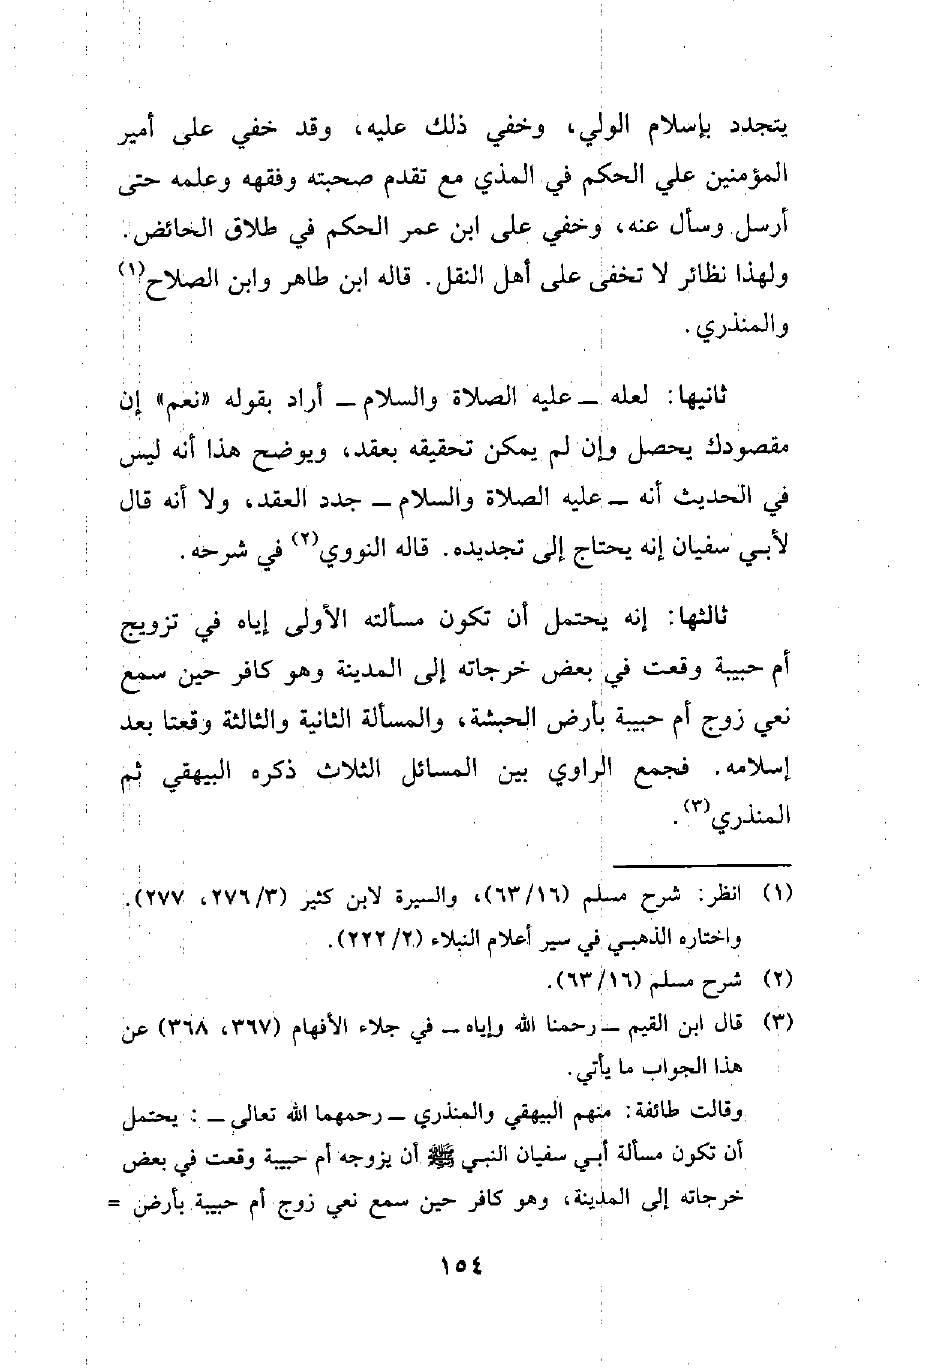 يتجدد بإسلام الولي، وخفي ذلك عليه، وقد خفي على أمير
المؤمنين علي الحكم في المذي مع تقدم صحبته وفقهه وعلمه حتى
أرسل وسأل عنه، وخفي على ابن عمر الحكم في طلاق الحائض.
ولهذا نظائر لا تخفى على أهل النقل. قاله ابن طاهر وابن الصلاح(١)
والمنذري.
ثانيها: لعله ــ عليه الصلاة والسلام ــ أراد بقوله «نعم» إن
مقصودك يحصل وإن لم يمكن تحقيقه بعقد، ويوضح هذا أنه ليس
في الحديث أنه ــ عليه الصلاة والسلام ــ جدد العقد، ولا أنه قال
لأبي سفيان إنه يحتاج إلى تجديده. قاله النووي(٢) في شرحه.
ثالثها: إنه يحتمل أن تكون مسألته الأولى إياه في تزويج
أم حبيبة وقعت في بعض خرجاته إلى المدينة وهو كافر حين سمع
نعي زوج أم حبيبة بأرض الحبشة، والمسألة الثانية والثالثة وقعتا بعد
إسلامه. فجمع الراوي بين المسائل الثلاث ذكره البيهقي ثم
المنذري(٣).
(١) انظر: شرح مسلم (٦٣/١٦)، والسيرة لابن كثير (٢٧٦/٣، ٢٧٧).
واختاره الذهبي في سير أعلام النبلاء (٢٢٢/٢).
(٢) شرح مسلم (٦٣/١٦).
(٣) قال ابن القيم ــ رحمنا الله وإياه ــ في جلاء الأفهام (٣٦٧، ٣٦٨) عن
هذا الجواب ما يأتي.
وقالت طائفة: منهم البيهقي والمنذري ــ رحمهما الله تعالى ــ : يحتمل
أن تكون مسألة أبي سفيان النبي ﷺ أن يزوجه أم حبيبة وقعت في بعض
خرجاته إلى المدينة، وهو كافر حين سمع نعي زوج أم حبيبة بأرض =
١٥٤